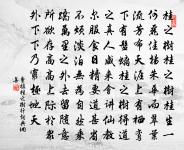 桂之樹桂之樹桂生一
何麗佳揚朱華而翠葉
流芳布天涯上有棲鸞
下有蟠螭桂之樹得道
之真人咸來會講仙教
爾服食日精要道甚省
不煩淡泊無為自然乘
蹻萬里之外去留隨意
所欲存高高上際於眾
外下下乃窮極地天
曹植桂之樹行詩